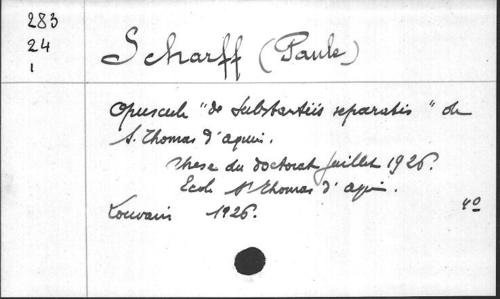 283
24
1
Scharff (Paule)
Opuscule "de substantiis separatis" de
S. Thomas d'Aquin.
Thèse du doctorat Juillet 1926.
Ecole St Thomas d'Aquin.
Louvain 1926. 4º